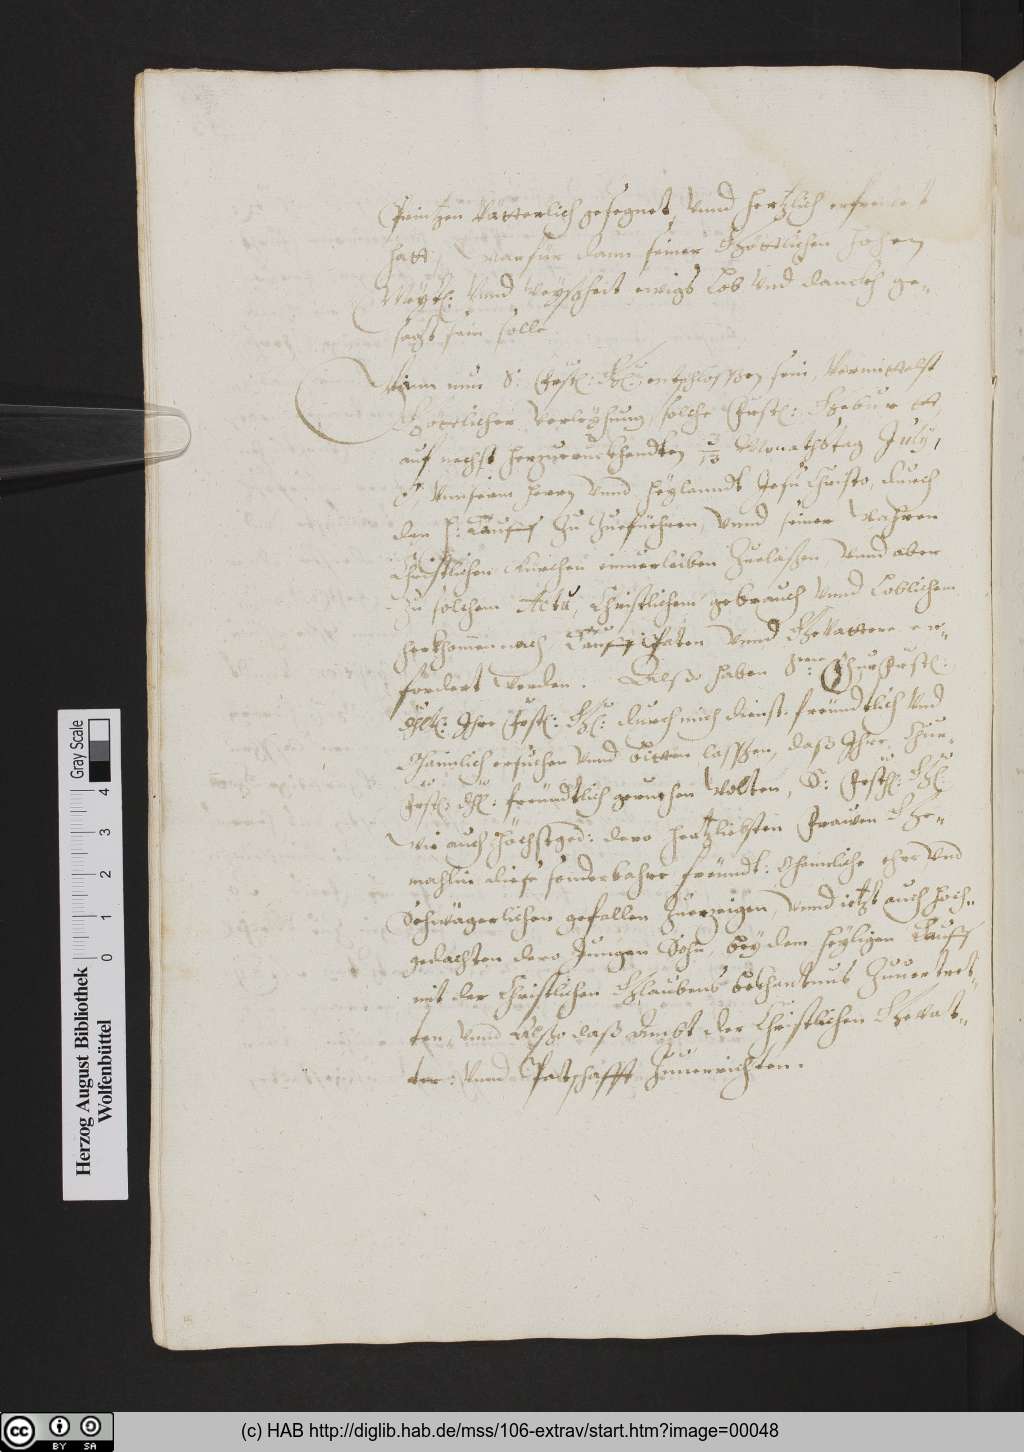 Printzen Vätterlich gesegnet, Vnnd hertzlich erfrewet
hatt, warfür dann seiner Göttlichen hohen
May: Vnnd weyßheit ewigs Lob Vnd danckh ge-
sagt sein solle.
Wann nun S: Fürstl: Gl: entschlossen sein, Vermittelst
Göttlicher Verleyhung, solche Fürstl: Gebur
auf nechst herzuruckhendten 3/13 Monathstag July,
Vnnserm Herrn Vnnd Heylanndt Jesu Christo, durch
den h: Tauff zu Zuefüehren, Vnnd seiner Wahren
Christlichen Kirchen einuerleiben Zuelaßen, Vnnd aber
Zu solchem Actu, Christlichem gebrauch Vnnd Loblichem
herkhommen nach Tauff Paten Vnnd Gevattern er-
fordert werden. Alß haben Ihre Churfürstl:
Ihre Fürstl: Gl: durch mich dienst: freündtlich Vnd
Ohaimlich ersuchen Vnnd bitten lassen, daß Ihre Chur-
Fürstl: freündtlich geruehen wolten, S: Fürstl: Gl:
wie auch Höchstged: dero hertzliebsten Frawen Ge-
mahlin diese sonderbahre freündt: Ohaimliche ehr Vnd
Schwägerlichen gefallen Zuerzeigen, Vnnd ietzt auch hoch-
gedachten dero Jungen Sohn, bey dem heyligen Tauff
mit der Christlichen Glaubens bekhantnus Zuuertret-
ten, Vnnd Alßo daß Ambt der Christlichen Gevat-
ter: Vnnd Patschafft Zuuerrichten.
Herzog August Bibliothek
Wolfenbüttel
0 1 2 3 4
Gray Scale
BY SA
(c) HAB http://diglib.hab.de/mss/106-extrav/start.htm?image=00048